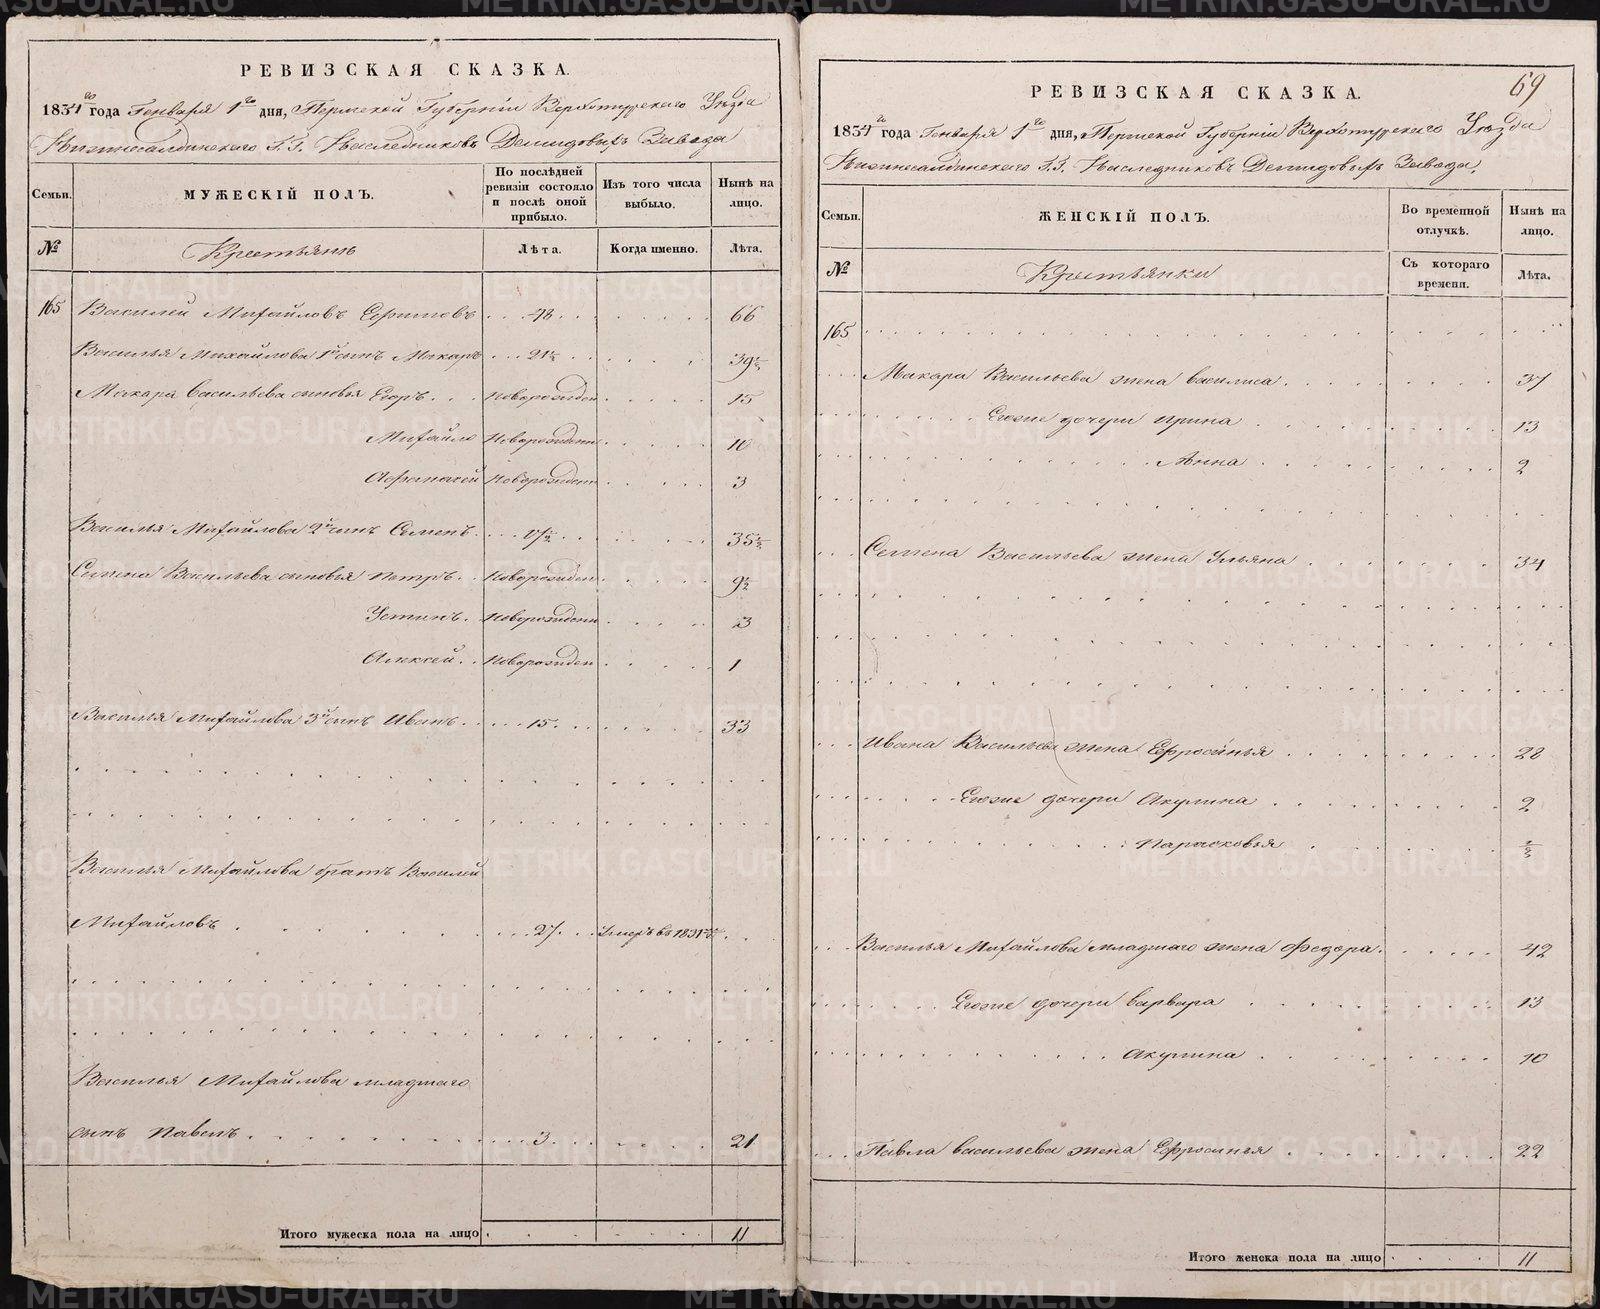 РЕВИЗСКАЯ СКАЗКА.
1834го года Генваря 1го дня, Пермской Губерніи Верхотурскаго Уѣзда
Нижнесалдинскаго Г.Г. Наследниковъ Демидовыхъ Завода
Семьи.
МУЖЕСКІЙ ПОЛЪ.
По послѣдней ревизіи состояло и послѣ оной прибыло.
Изъ того числа выбыло.
Нынѣ на лицо.
№
Крестьянъ
Лѣта.
Когда именно.
Лѣта.
165 Василей Михайловъ Ефимовъ 48 66
Василья Михайлова 1й сынъ Макаръ 21½ 39½
Макара Васильева сыновья Егоръ Новорожден 15
Михайло Новорожденн 10
Афанасей Новорожденн 3
Василья Михайлова 2й сынъ Семенъ 17½ 35½
Семена Васильева сыновья Петръ Новорожден 9½
Устинъ Новорожденн 3
Алексей Новорожден 1
Василья Михайлова 3й сынъ Иванъ 15 33
Василья Михайлова братъ Василей
Михайловъ 27 Умеръ въ 1831
Василья Михайлова младшаго
сынъ Павелъ 3 21
Итого мужеска пола на лицо 11
69
РЕВИЗСКАЯ СКАЗКА.
1834го года Генваря 1го дня, Пермской Губерніи Верхотурскаго Уѣзда
Нижнесалдинскаго Г.Г. Наследниковъ Демидовыхъ Завода,
Семьи.
ЖЕНСКІЙ ПОЛЪ.
Во временной отлучкѣ.
Нынѣ на лицо.
№
Крестьянки
Съ котораго времени.
Лѣта.
165
Макара Васильева жена Василиса 37
Егоже дочери Ирина 13
Анна 2
Семена Васильева жена Ульяна 34
Ивана Васильева жена Ефросинья 28
Егоже дочери Акулина 2
Парасковья ½
Василья Михайлова младшаго жена Федора 42
Егоже дочери Варвара 13
Акулина 10
Павла Васильева жена Ефросинья 22
Итого женска пола на лицо 11
METRIKI.GASO-URAL.RU